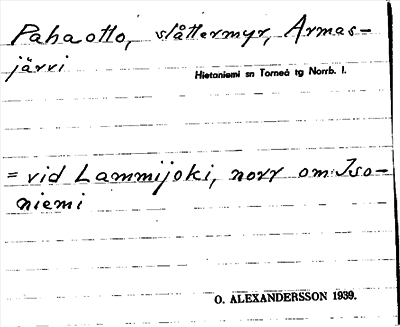 Pahaotto, slåttermyr, Armas-
järvi
Hietaniemi sn Torneå tg Norrb. l.
= vid Lammijoki, norr om Iso-
niemi
O. ALEXANDERSSON 1939.